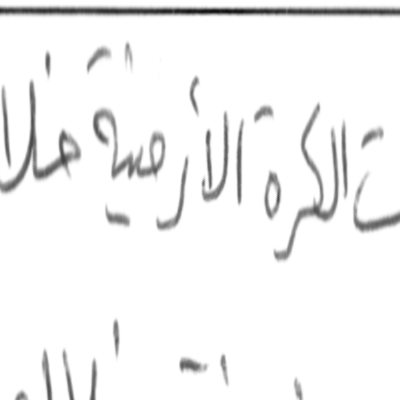 ت الكرة الأرضية خلا